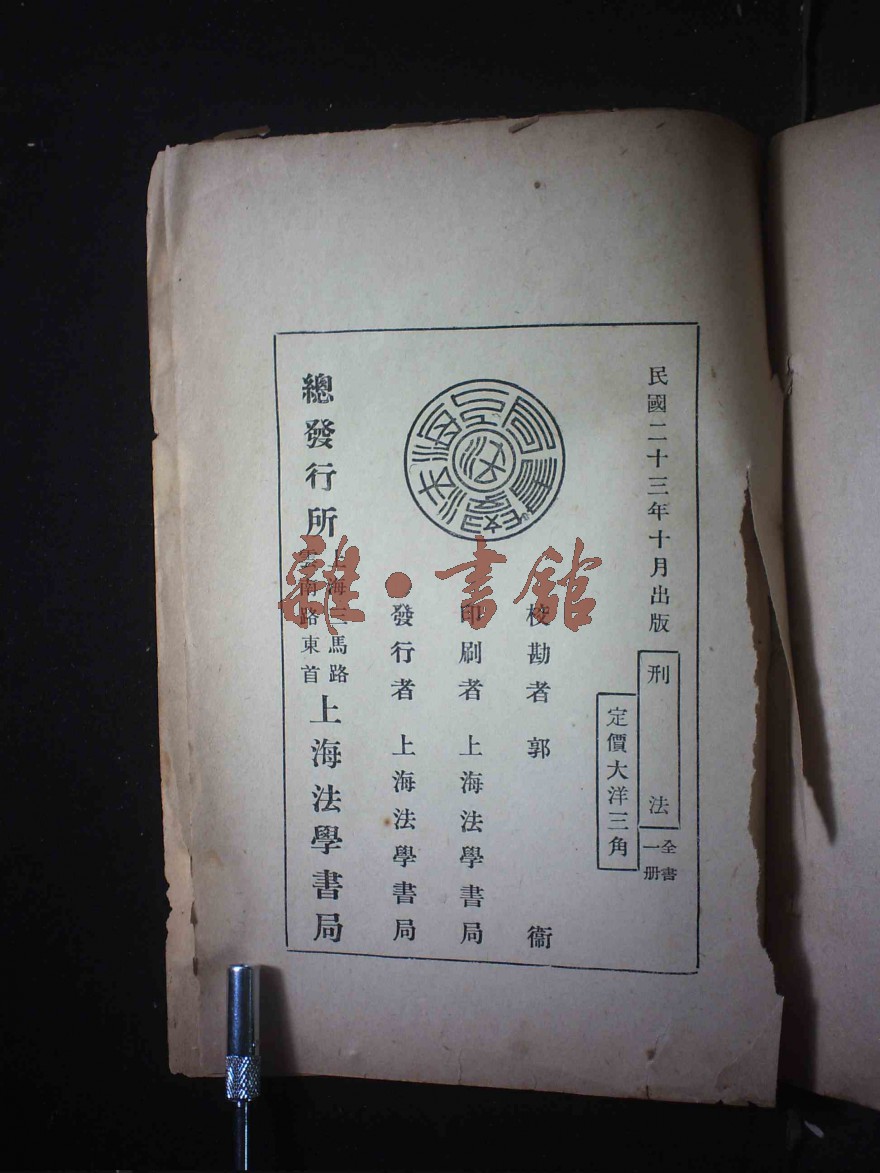 民國二十三年十月出版
刑法
全書一册
定價大洋三角
校勘者 郭衞
印刷者 上海法學書局
發行者 上海法學書局
總發行所
上海三馬路
雲南路東首
上海法學書局
雜·書館